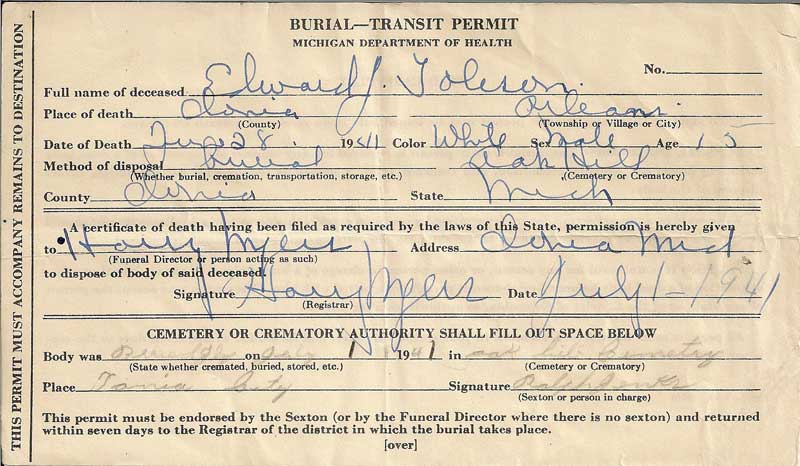 BURIAL—TRANSIT PERMIT
MICHIGAN DEPARTMENT OF HEALTH
No.
Full name of deceased Edward J. Toleson
Place of death Ionia Orleans
(County) (Township or Village or City)
Date of Death June 28. 1941 Color White Sex Male Age 15
Method of disposal burial Oak Hill
(Whether burial, cremation, transportation, storage, etc.) (Cemetery or Crematory)
County Ionia State Mich
A certificate of death having been filed as required by the laws of this State, permission is hereby given
to Harry Myers Address Ionia Mich
(Funeral Director or person acting as such)
to dispose of body of said deceased.
Signature Harry Myers Date July 1-1941
(Registrar)
CEMETERY OR CREMATORY AUTHORITY SHALL FILL OUT SPACE BELOW
Body was on July 1 1941 in oak hill Cemetery
(State whether cremated, buried, stored, etc.) (Cemetery or Crematory)
Place Ionia City Signature Ralph
(Sexton or person in charge)
This permit must be endorsed by the Sexton (or by the Funeral Director where there is no sexton) and returned
within seven days to the Registrar of the district in which the burial takes place.
[over]
THIS PERMIT MUST ACCOMPANY REMAINS TO DESTINATION